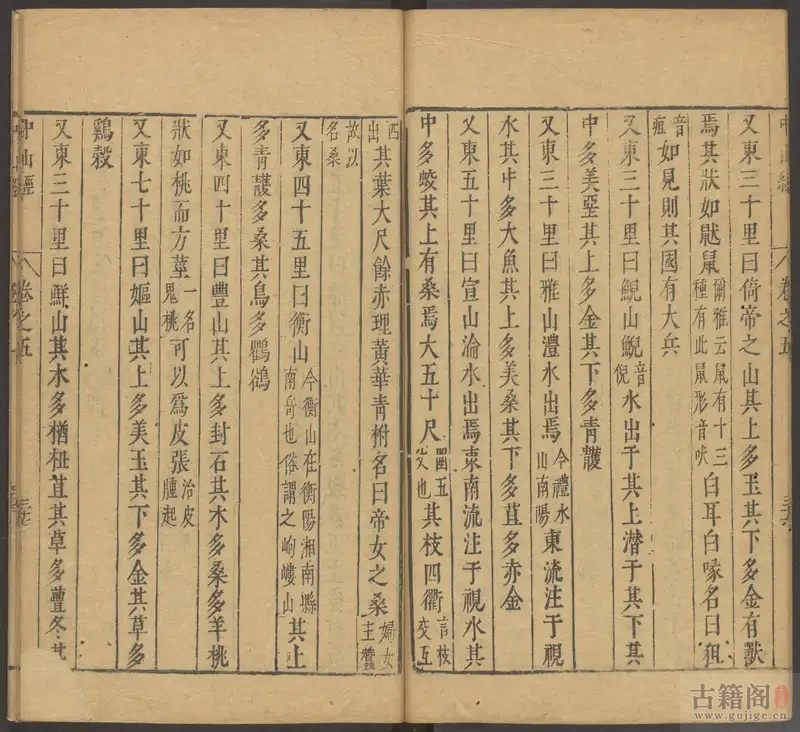 中山經 卷之五
又東三十里曰倚帝之山其上多玉其下多金有獸
焉其狀如鼣鼠爾雅云鼠有十三種有此鼠形音吠白耳白喙名曰狙
音疽如見則其國有大兵
又東三十里曰鯢山鯢音倪水出于其上潜于其下其
中多美堊其上多金其下多青雘
又東三十里曰雅山澧水出焉今禮水山南陽東流注于視
水其中多大魚其上多美桑其下多苴多赤金
又東五十里曰宣山淪水出焉東南流注于視水其
中多蛟其上有桑焉大五十尺圍五丈也其枝四衢言枝交互
四出其葉大尺餘赤理黃華青柎名曰帝女之桑婦女主蠶
故以名桑
又東四十五里曰衡山今衡山在衡陽湘南縣南岳也俗謂之岣嶁山其上
多青雘多桑其鳥多鸜鵒
又東四十里曰豐山其上多封石其木多桑多羊桃
狀如桃而方莖一名鬼桃可以爲皮張治皮腫起
又東七十里曰嫗山其上多美玉其下多金其草多
鷄穀
又東三十里曰鮮山其木多楢杻苴其草多虋冬其
中山經 卷之五
古籍阁
www.gujige.cn